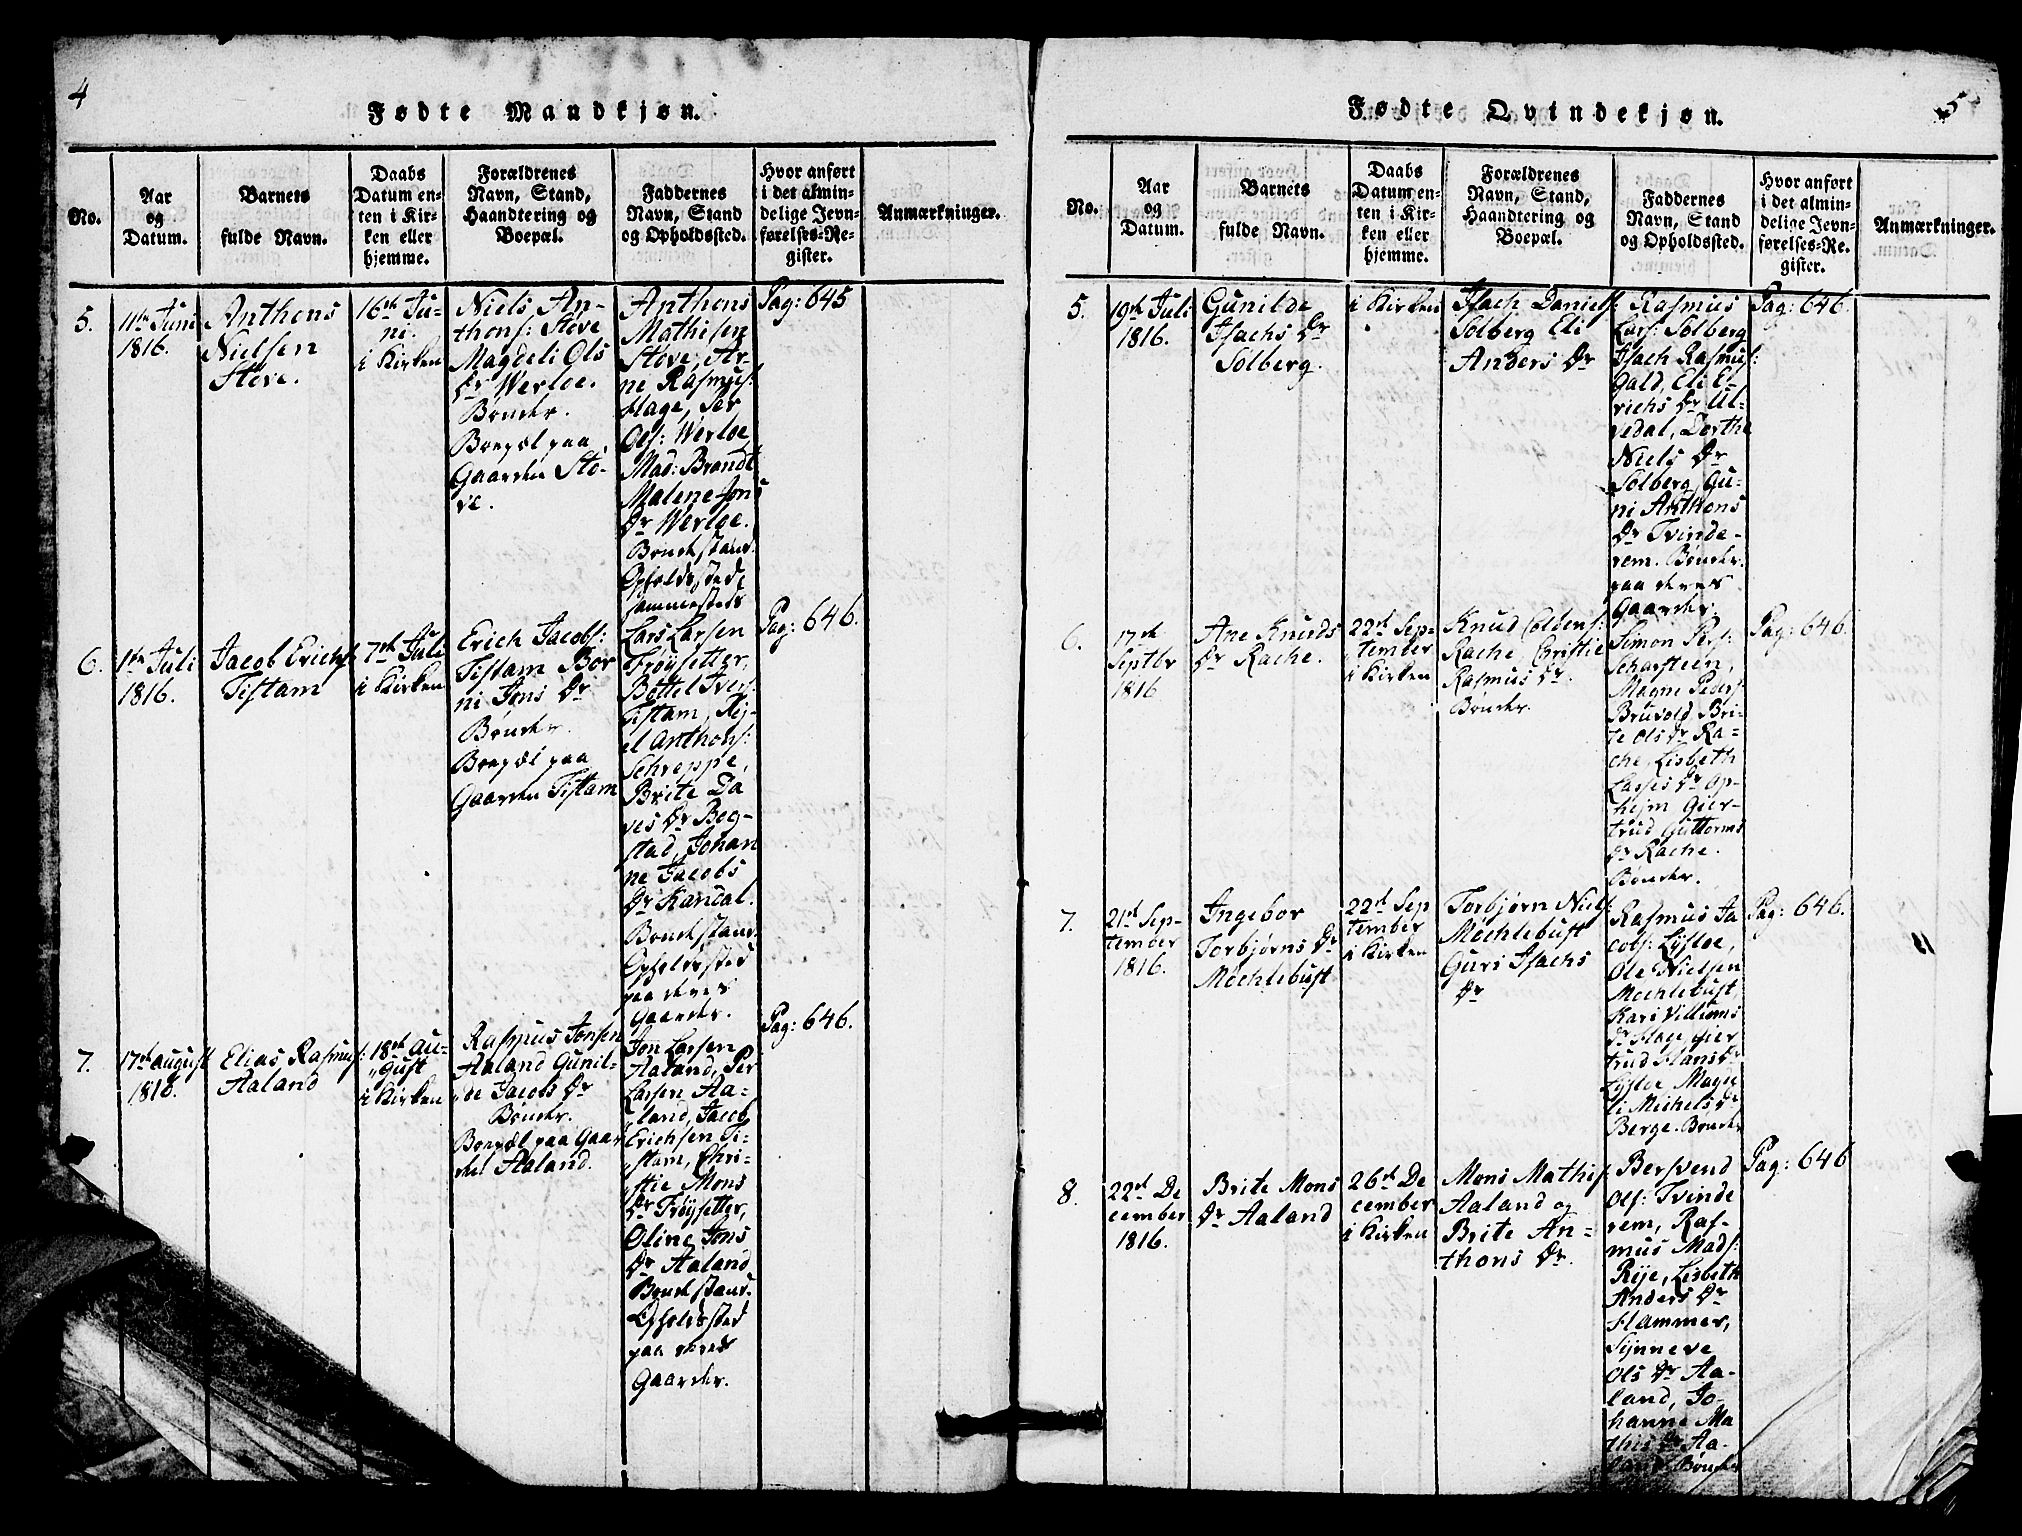 4
Fødte Mandkjøn.
No.
Aar
og
Datum.
Barnets
fulde Navn.
Daabs
Datum en-
ten i Kir-
ken eller
hjemme.
Forældrenes
Navn, Stand,
Haandtering og
Boepæl.
Faddernes
Navn, Stand
og Opholdssted.
Hvor anført
i det almin-
delige Jevn-
førelses-Re-
gister.
Anmærkninger.
5.
11te Juni
1816.
Anthons
Nielsen
Støve.
16de Ju-
ni.
i Kirken
Niels An-
thons: Støve
Magdeli Ols
Dr Werløe.
Bønder.
Boepæl paa
Gaarden Stø-
ve.
Anthons
Mathisen
Støve, Ar-
ne Rasmus:
Hage, Sier
Ols: Werløe,
Mad: Brandt
Malene Jons
Dr Werløe.
Bondestand.
Opholdssted
sammesteds
Pag: 645
6.
1te Juli
1816.
Jacob Erichs:
Tistam
7de Juli
i Kirken
Erich Jacobs:
Tistam Bor
ni Jons Dr
Bønder.
Boepæl paa
Gaarden Tistam
Lars Larsen
Frøysetter,
Bottel Ivers:
Tistam, Kij-
el Anthons:
Schreppe,
Brite Da
ves Dr Bog-
stad, Johan
ne Jacobs
Dr Kandal.
Bondestand.
Opholdssted
paa deres
Gaarder.
Pag: 646.
7.
17de August
1816.
Elias Rasmus:
Aaland
18de Au-
gust
i Kirken
Rasmus Jonsen
Aaland Gunil-
de Jacobs Dr
Bønder.
Boepæl paa Gaar
den Aaland.
Jon Larsen
Aaland, Per
Larsen Aa-
land, Jacob
Erichsen Ti-
stam, Chri-
stie Mons
Dr Frøysetter,
Oline Jons
Dr Aaland
Bondestand.
Opholdssted
paa deres
Gaarder.
Pag: 646.
5
Fødte Qvindekjøn.
No.
Aar
og
Datum.
Barnets
fulde Navn.
Daabs
Datum en-
ten i Kir-
ken eller
hjemme.
Forældrenes
Navn, Stand,
Haandtering og
Boepæl.
Faddernes
Navn, Stand
og Opholdssted.
Hvor anført
i det almin-
delige Jevn-
førelses-Re-
gister.
Anmærkninger.
5.
19de Juli
1816.
Gunilde
Isachs Dr
Solberg.
i Kirken
Isach Daniels:
Solberg Eli
Anders Dr
Rasmus
Lars: Solberg
Isach Rasmus:
Gald, Eli E-
richs Dr Ul-
vedal, Dorthe
Niels Dr
Solberg, Gu-
ni Anthons
Dr Tvinde-
rem. Bønder.
paa deres
Gaarder.
Pag: 646.
6.
17de
Septbr
1816
Ane Knuds
Dr Rache.
22de Sep-
tember
i Kirken
Knud Colbens:
Rache, Christie
Rasmus Dr
Bønder.
Simon Pers:
Scharsteen,
Magne Peders:
Bruvold, Bri-
te Ols Dr Ra-
che, Lisbeth
Lasses Dr Op-
hejm Gier-
trud Guttorms
Dr Rache.
Bønder.
Pag: 646.
7.
21de Sep-
tember
1816.
Ingebor
Torbjørns Dr
Mochlebust
22de Sep
tember
i Kirken
Torbjørn Niels:
Mochlebust
Guri Isachs
Dr
Rasmus Ja
cobs: Lysløe,
Ole Nielsen
Mochlebust,
Kari Villums
Dr Hage, Gier
trud Hans Dr
Lysløe Magde
li Michels Dr
Berge. Bønder
Pag: 646.
8.
22de De
cember
1816.
Brite Mons
Dr Aaland
26de De
cember
i Kirken
Mons Mathis:
Aaland og
Brite An-
thons Dr.
Bersvend
Ols: Tvinde
rem, Ras-
mus Mads:
Rije, Lisbeth
Anders Dr
Hammer,
Synneve
Ols Dr Aa-
land, Jo-
hanne Ma
this Dr Aa-
land. Bønder
Pag: 646